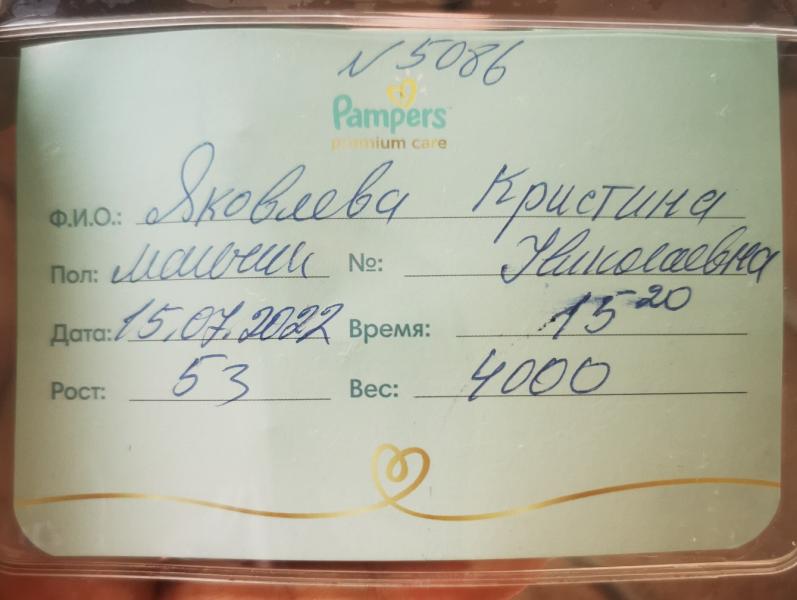 N 5086
Pampers
premium care
Ф.И.О.: Яковлева Кристина
Николаевна
Пол: мальчик №:
Дата: 15.07.2022 Время: 15 20
Рост: 53 Вес: 4000